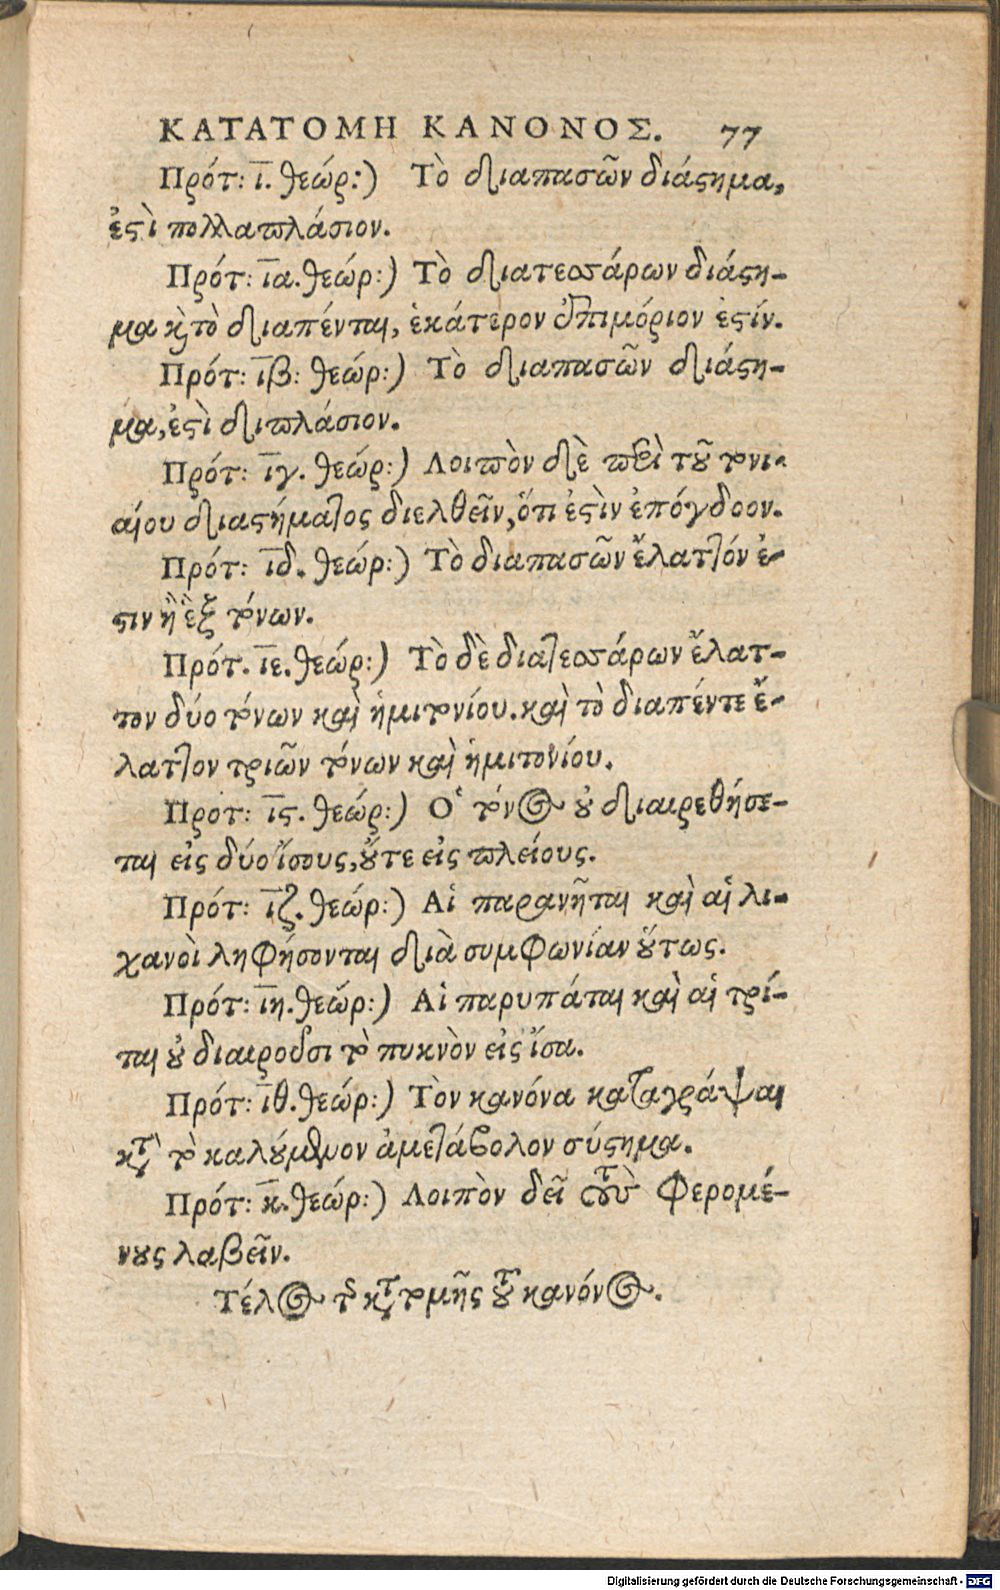 ΚΑΤΑΤΟΜΗ ΚΑΝΟΝΟΣ. 77
Πρότ: ῑ. θεώρ:) Τὸ διαπασῶν διάϛημα,
ἐϛὶ πολλαπλάσιον.
Πρότ: ῑα. θεώρ:) Τὸ διατεσσάρων διάϛη-
μα καὶ τὸ διαπένται, ἑκάτερον ἐπιμόριον ἐϛίν.
Πρότ: ῑβ: θεώρ:) Τὸ διαπασῶν διάϛη-
μα, ἐϛὶ διπλάσιον.
Πρότ: ῑγ. θεώρ:) Λοιπὸν δὲ περὶ τȣ͂ τονι-
αίου διαϛήματος διελθεῖν, ὅτι ἐϛὶν ἐπόγδοον.
Πρότ: ῑδ. θεώρ:) Τὸ διαπασῶν ἔλαττόν ἐ-
ϛιν ἢ ἓξ τόνων.
Πρότ. ῑε. θεώρ:) Τὸ δὲ διατεσσάρων ἔλατ-
τον δύο τόνων καὶ ἡμιτονίου. καὶ τὸ διαπέντε ἔ-
λαττον τριῶν τόνων καὶ ἡμιτονίου.
Πρότ: ῑϛ. θεώρ:) Ὁ τόνος ȣ̓ διαιρεθήσε-
ται εἰς δύο ἴσους, ȣ̓́τε εἰς πλείους.
Πρότ: ῑζ. θεώρ:) Αἱ παρανῆται καὶ αἱ λι-
χανοὶ ληφήσονται διὰ συμφωνίαν ȣ̔́τως.
Πρότ: ῑη. θεώρ:) Αἱ παρυπάται καὶ αἱ τρί-
ται ȣ̓ διαιροῦσι τὸ πυκνὸν εἰς ἴσα.
Πρότ: ῑθ. θεώρ:) Τὸν κανόνα καταγράψαι
κατὰ τὸ καλȣ́μενον ἀμετάβολον σύϛημα.
Πρότ: κ̄. θεώρ:) Λοιπὸν δεῖ τοὺς φερομέ-
νȣς λαβεῖν.
Τέλος τῆς κατατομῆς τȣ͂ κανόνος.
Digitalisierung gefördert durch die Deutsche Forschungsgemeinschaft - DFG